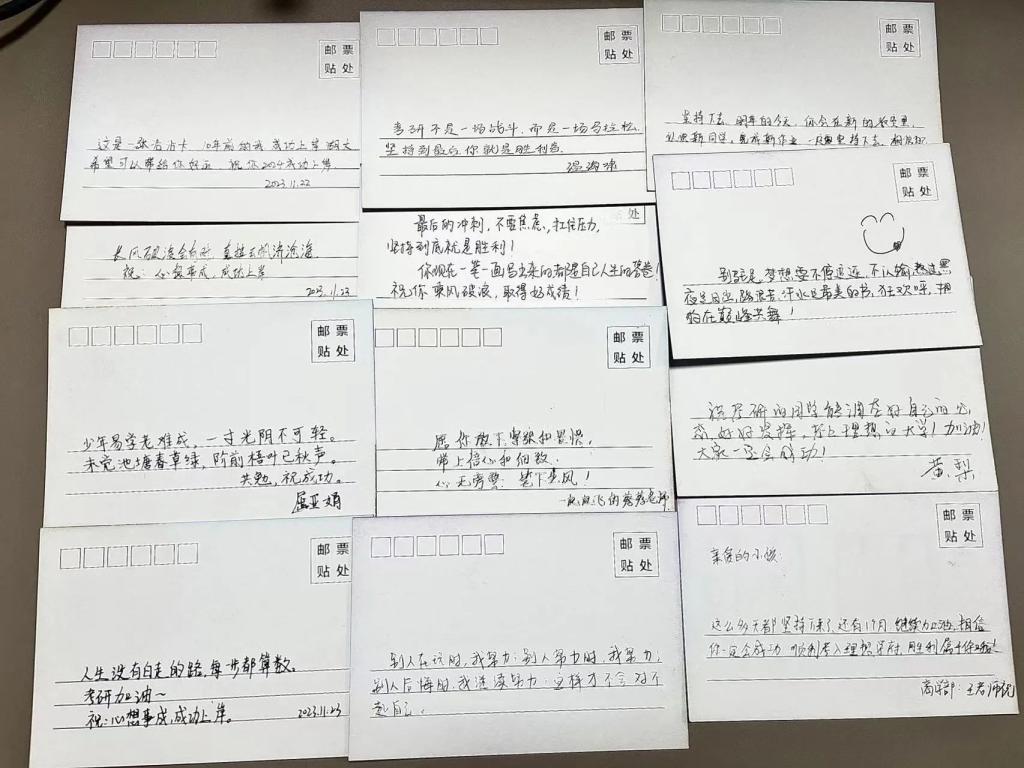 邮 票
贴 处
这是一张沾沾卡 10年前的我 成功上岸
希望可以带给你好运. 祝你2024成功上岸
2023.11.22
邮 票
贴 处
考研不是一场战斗,而是一场马拉松,
坚持到最后,你就是胜利者.
邮 票
贴 处
坚持下去,明年的今天,你会在新的教室里,
认识新同学,
长风破浪会有时,直挂云帆济沧海
祝:心想事成,成功上岸
2023.11.23
处
最后的冲刺,不要焦虑,扛住压力,
坚持到底就是胜利!
你现在一笔一画写出来的都是自己人生的答卷!
祝你乘风破浪,取得好成绩!
邮 票
贴 处
别驻足,梦想要不停追逐,不认输,熬过黑
夜是日出,除苦,汗水是最美的书,狂欢呼,相
约在巅峰共舞!
邮 票
贴 处
少年易学老难成,一寸光阴不可轻。
未觉池塘春草绿,阶前梧叶已秋声。
共勉,祝成功。
屈亚娟
邮 票
贴 处
愿你放下紧张和畏惧,
带上信心和细致
心无旁骛 笔下生风!
祝考研的同学能调整好自己的心
态,好好发挥,考上理想的大学!加油!
大家一定会成功!
黄梨
邮 票
贴 处
人生没有白走的路,每步都算数。
考研加油~
祝:心想事成,成功上岸。
2023.11.23
邮 票
贴 处
别人在玩时,我努力;别人努力时,我努力;
别人后悔时,我继续努力;这样才不会对不
起自己。
邮 票
贴 处
亲爱的小倓:
这么多天都坚持下来了,还有1个月,继续加油,相信
你一定会成功 顺利考入理想学府,胜利属于你
商学部:王老师祝